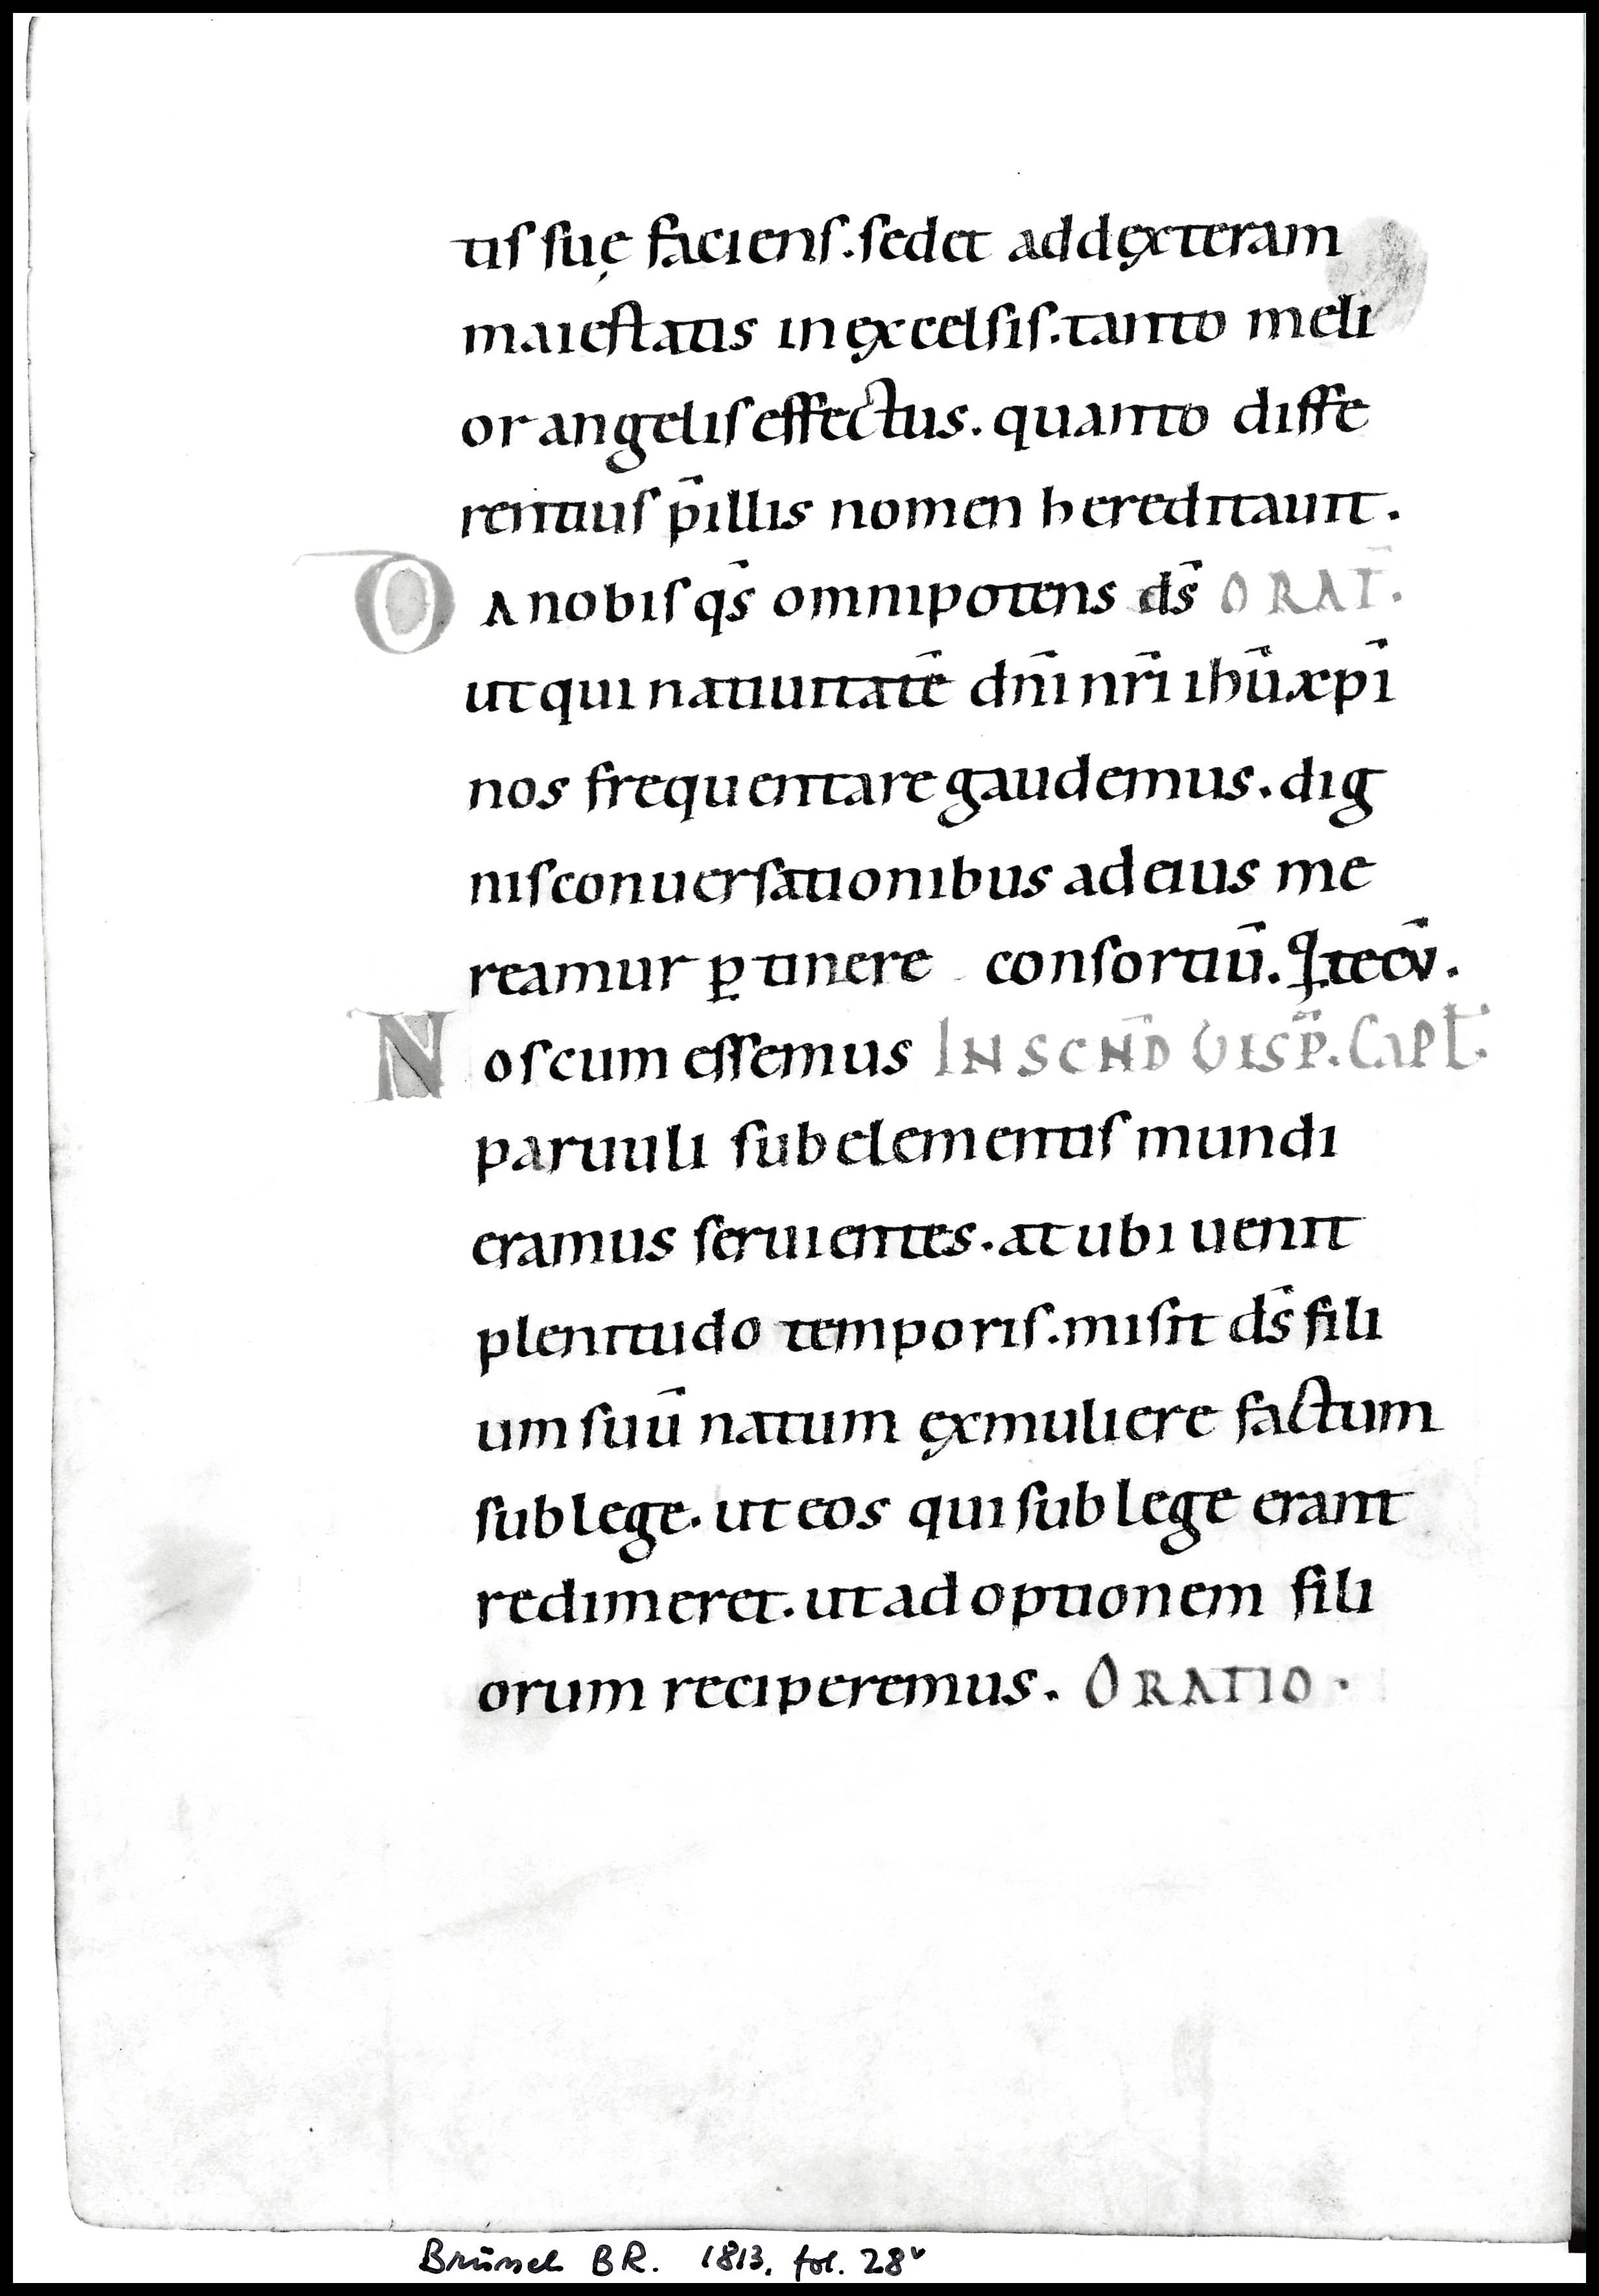 tis suę faciens. sedet ad dęxteram
maiestatis in ęxcelsis. tanto meli
or angelis effectus. quanto diffe
rentius p̄ illis nomen hereditauit.
DA nobis qs̄ omnipotens ds̄ ORAT̄.
ut qui natiuitatē dn̄i nr̄i ihū xp̄i
nos frequentare gaudemus. dig
nis conuersationibus ad eius me
reamur ꝑtinere consortiū. Q̄ tecū.
Nos cum essemus IN SCN̄D UISP̄. CAPŁ.
paruuli sub elementis mundi
eramus seruientes. at ubi uenit
plenitudo temporis. misit ds̄ fili
um suū natum ęx muliere factum
sub lege. ut eos qui sub lege erant
redimeret. ut adoptionem fili
orum reciperemus. ORATIO.
Brüssel BR. 1813, fol. 28v